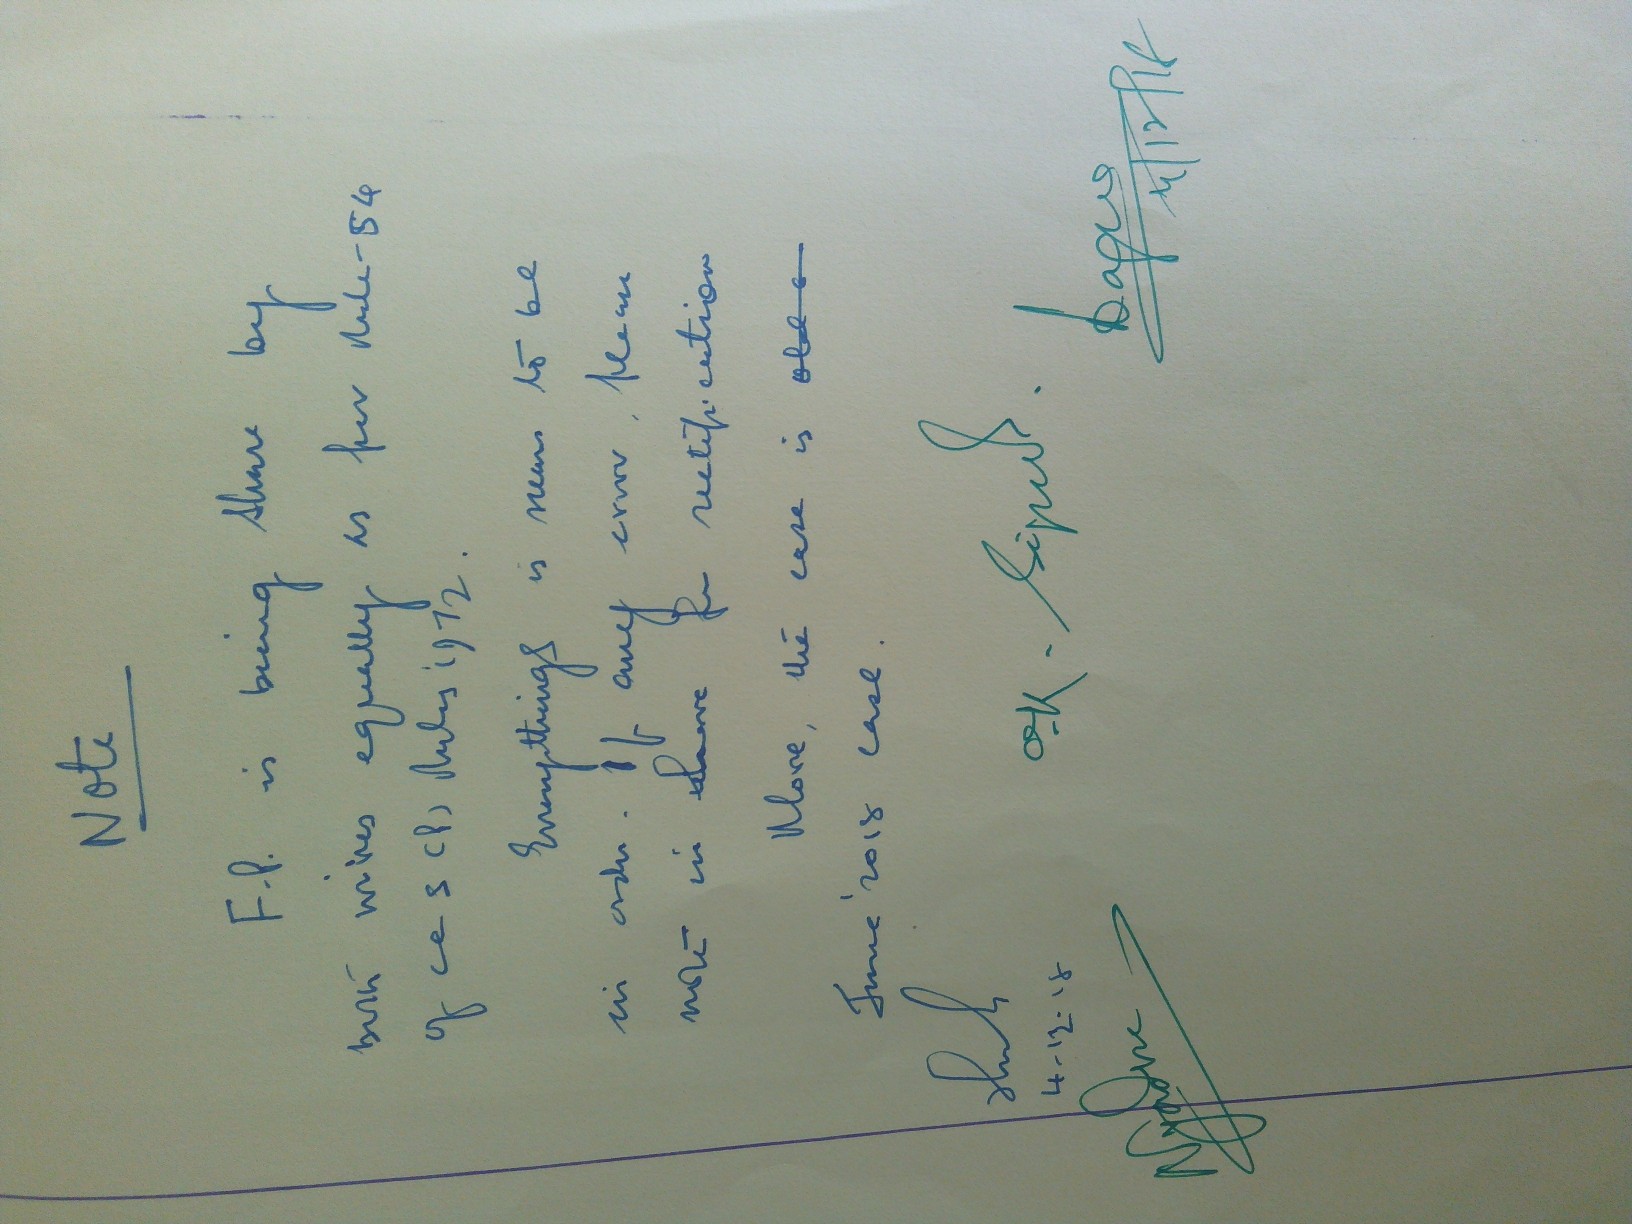 Note
F.P. is being share by
both wives equally as per Rule-54
of CCS (P) Rules, 1972.
Everythings is seems to be
in order. If any error, please
note in share for rectification
More, the case is olde
June'2018 case.
4-12-18
O.K. - Signed.
4/12/18